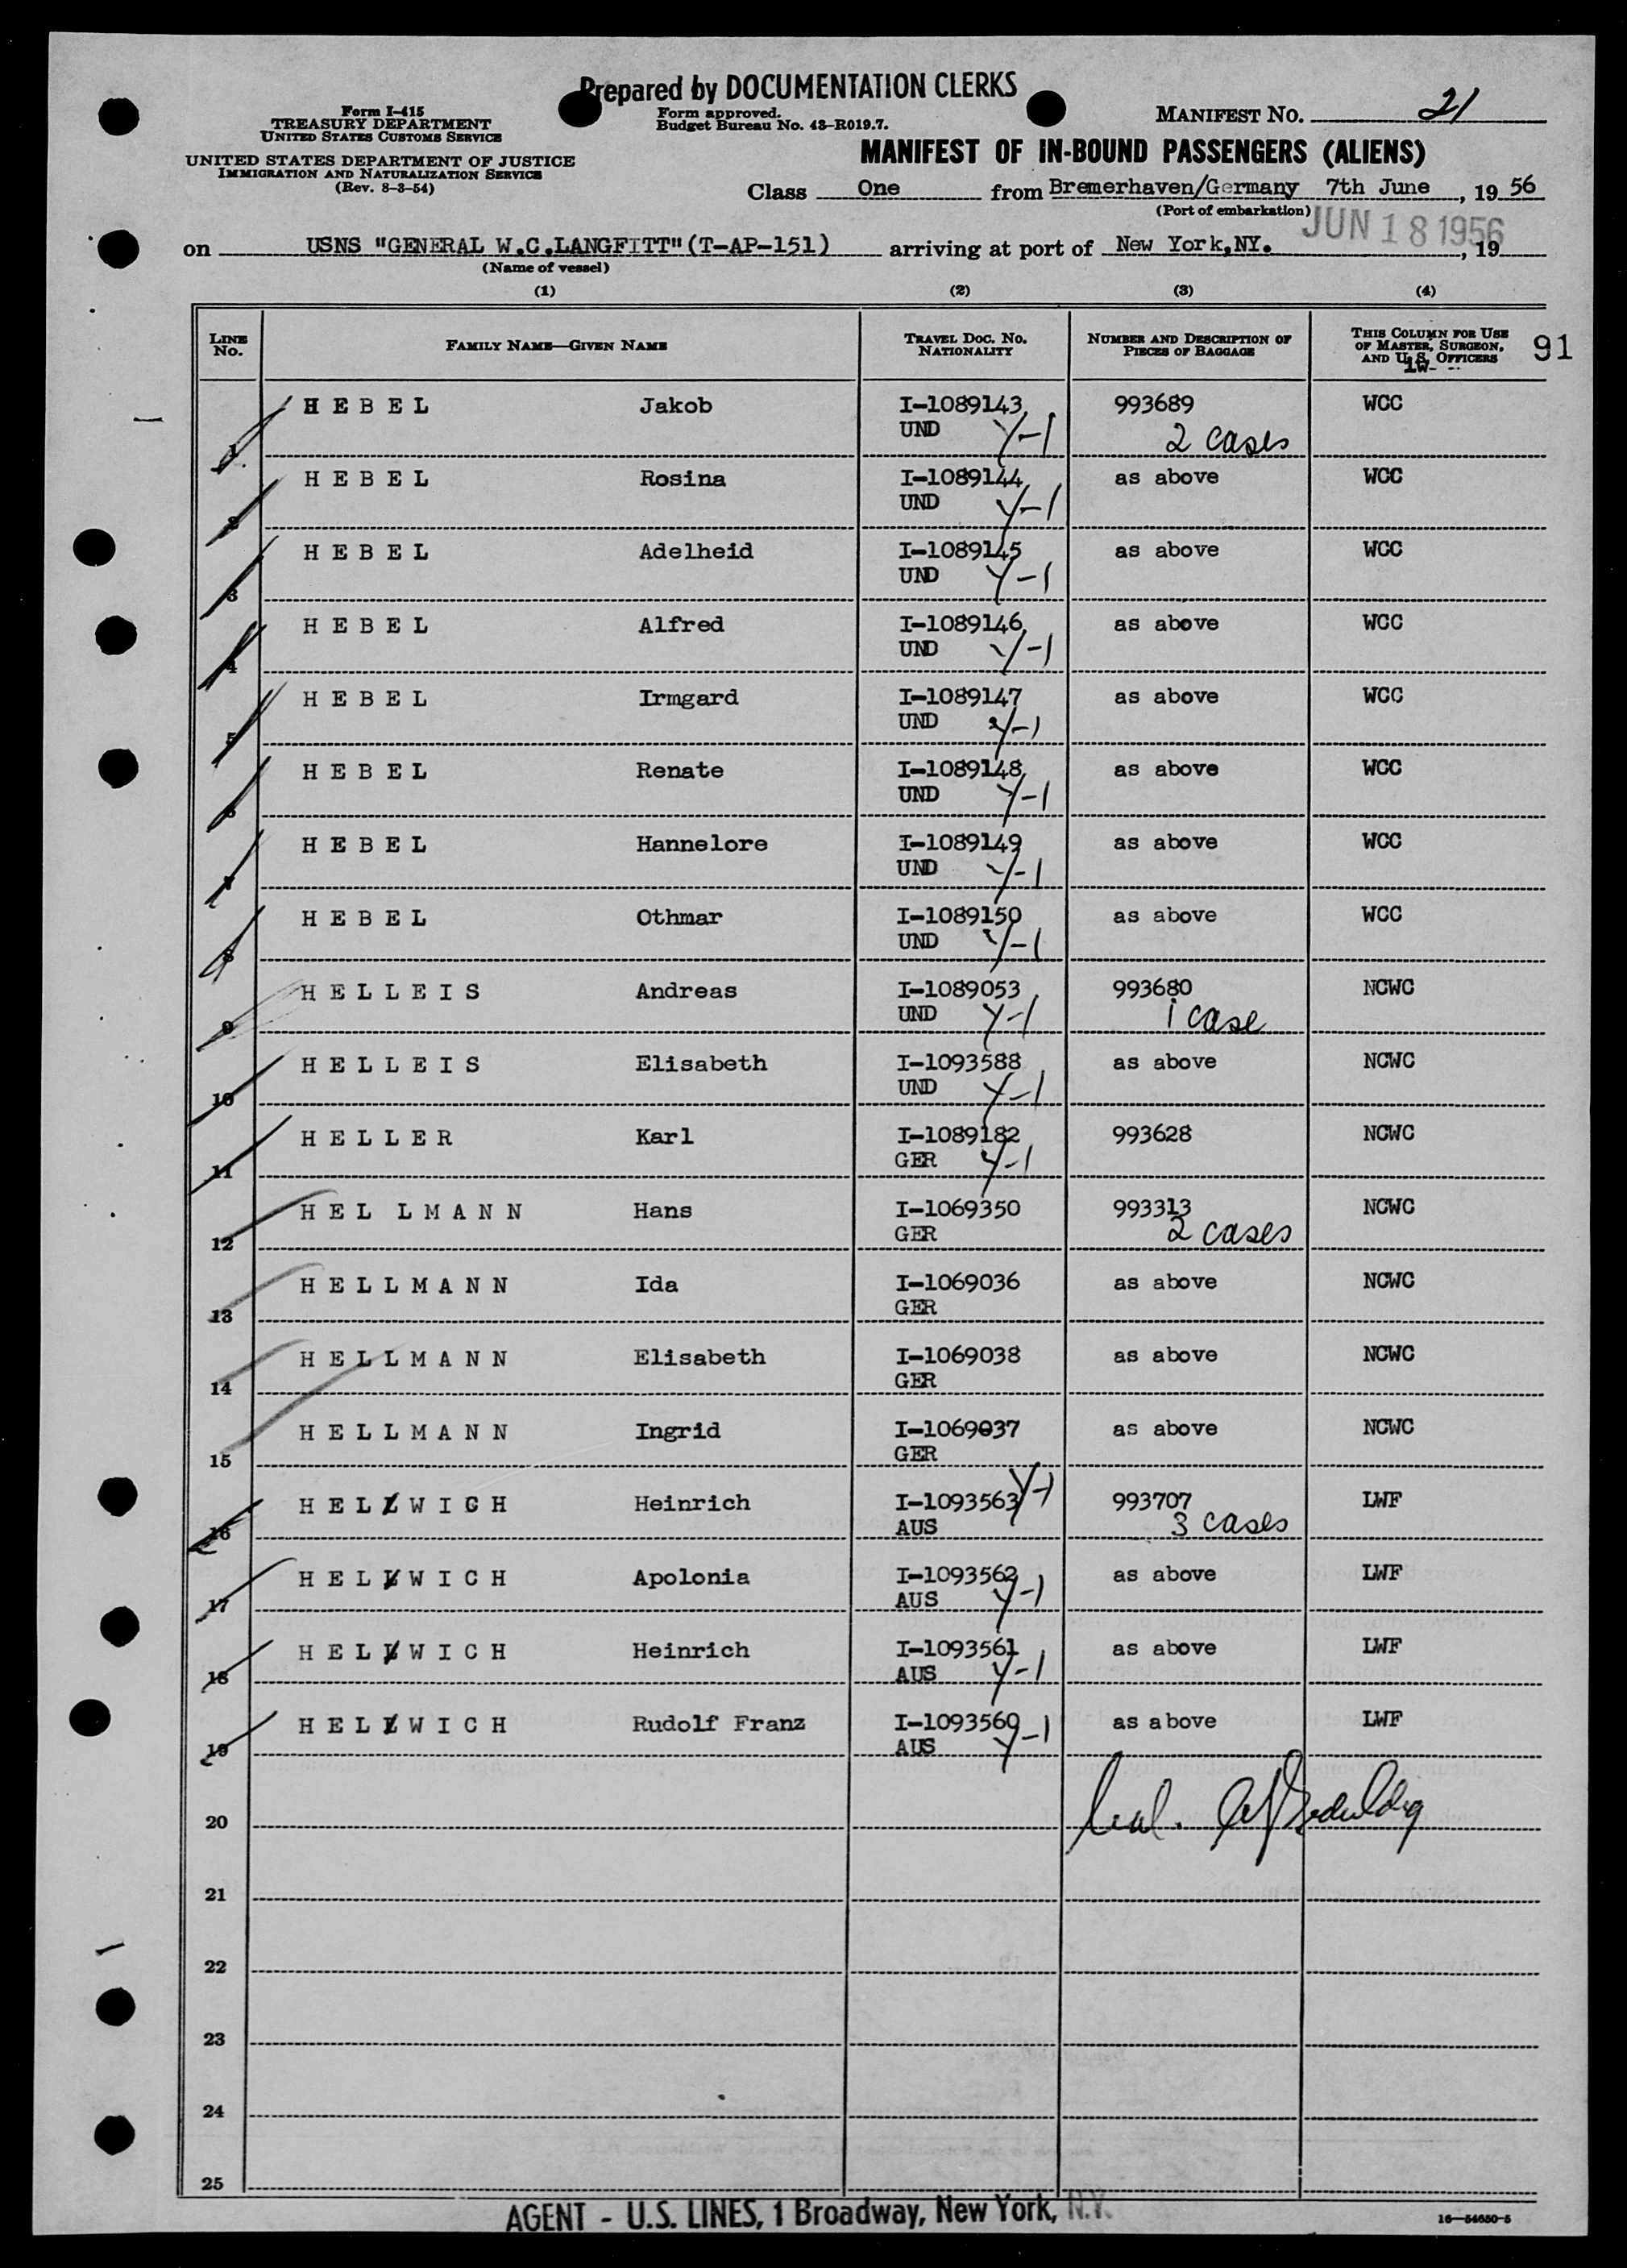 Prepared by DOCUMENTATION CLERKS
Form I-415
TREASURY DEPARTMENT
UNITED STATES CUSTOMS SERVICE
UNITED STATES DEPARTMENT OF JUSTICE
IMMIGRATION AND NATURALIZATION SERVICE
(Rev. 8-3-54)
Form approved.
Budget Bureau No. 43-R019.7.
MANIFEST NO. 21
MANIFEST OF IN-BOUND PASSENGERS (ALIENS)
Class One from Bremerhaven/Germany 7th June, 19 56
(Port of embarkation)
JUN 18 1956
on USNS "GENERAL W.C.LANGFITT" (T-AP-151) arriving at port of New York,NY. , 19
(Name of vessel)
(1) (2) (3) (4)
LINE NO. FAMILY NAME—GIVEN NAME TRAVEL DOC. NO. NATIONALITY NUMBER AND DESCRIPTION OF PIECES OF BAGGAGE THIS COLUMN FOR USE OF MASTER, SURGEON, AND U. S. OFFICERS
91
1 H E B E L Jakob I-1089143 993689 WCC
UND Y-1 2 cases
2 H E B E L Rosina I-1089144 as above WCC
UND Y-1
3 H E B E L Adelheid I-1089145 as above WCC
UND Y-1
4 H E B E L Alfred I-1089146 as above WCC
UND Y-1
5 H E B E L Irmgard I-1089147 as above WCC
UND Y-1
6 H E B E L Renate I-1089148 as above WCC
UND Y-1
7 H E B E L Hannelore I-1089149 as above WCC
UND Y-1
8 H E B E L Othmar I-1089150 as above WCC
UND Y-1
9 H E L L E I S Andreas I-1089053 993680 NCWC
UND Y-1 1 case
10 H E L L E I S Elisabeth I-1093588 as above NCWC
UND Y-1
11 H E L L E R Karl I-1089182 993628 NCWC
GER Y-1
12 H E L L M A N N Hans I-1069350 993313 NCWC
GER 2 cases
13 H E L L M A N N Ida I-1069036 as above NCWC
GER
14 H E L L M A N N Elisabeth I-1069038 as above NCWC
GER
15 H E L L M A N N Ingrid I-1069037 as above NCWC
GER
16 H E L L W I C H Heinrich I-1093563 Y-1 993707 LWF
AUS 3 cases
17 H E L L W I C H Apolonia I-1093562 as above LWF
AUS Y-1
18 H E L L W I C H Heinrich I-1093561 as above LWF
AUS Y-1
19 H E L L W I C H Rudolf Franz I-1093560 as above LWF
AUS Y-1
20
21
22
23
24
25
AGENT - U.S. LINES, 1 Broadway, New York, N.Y.
16—54650-5